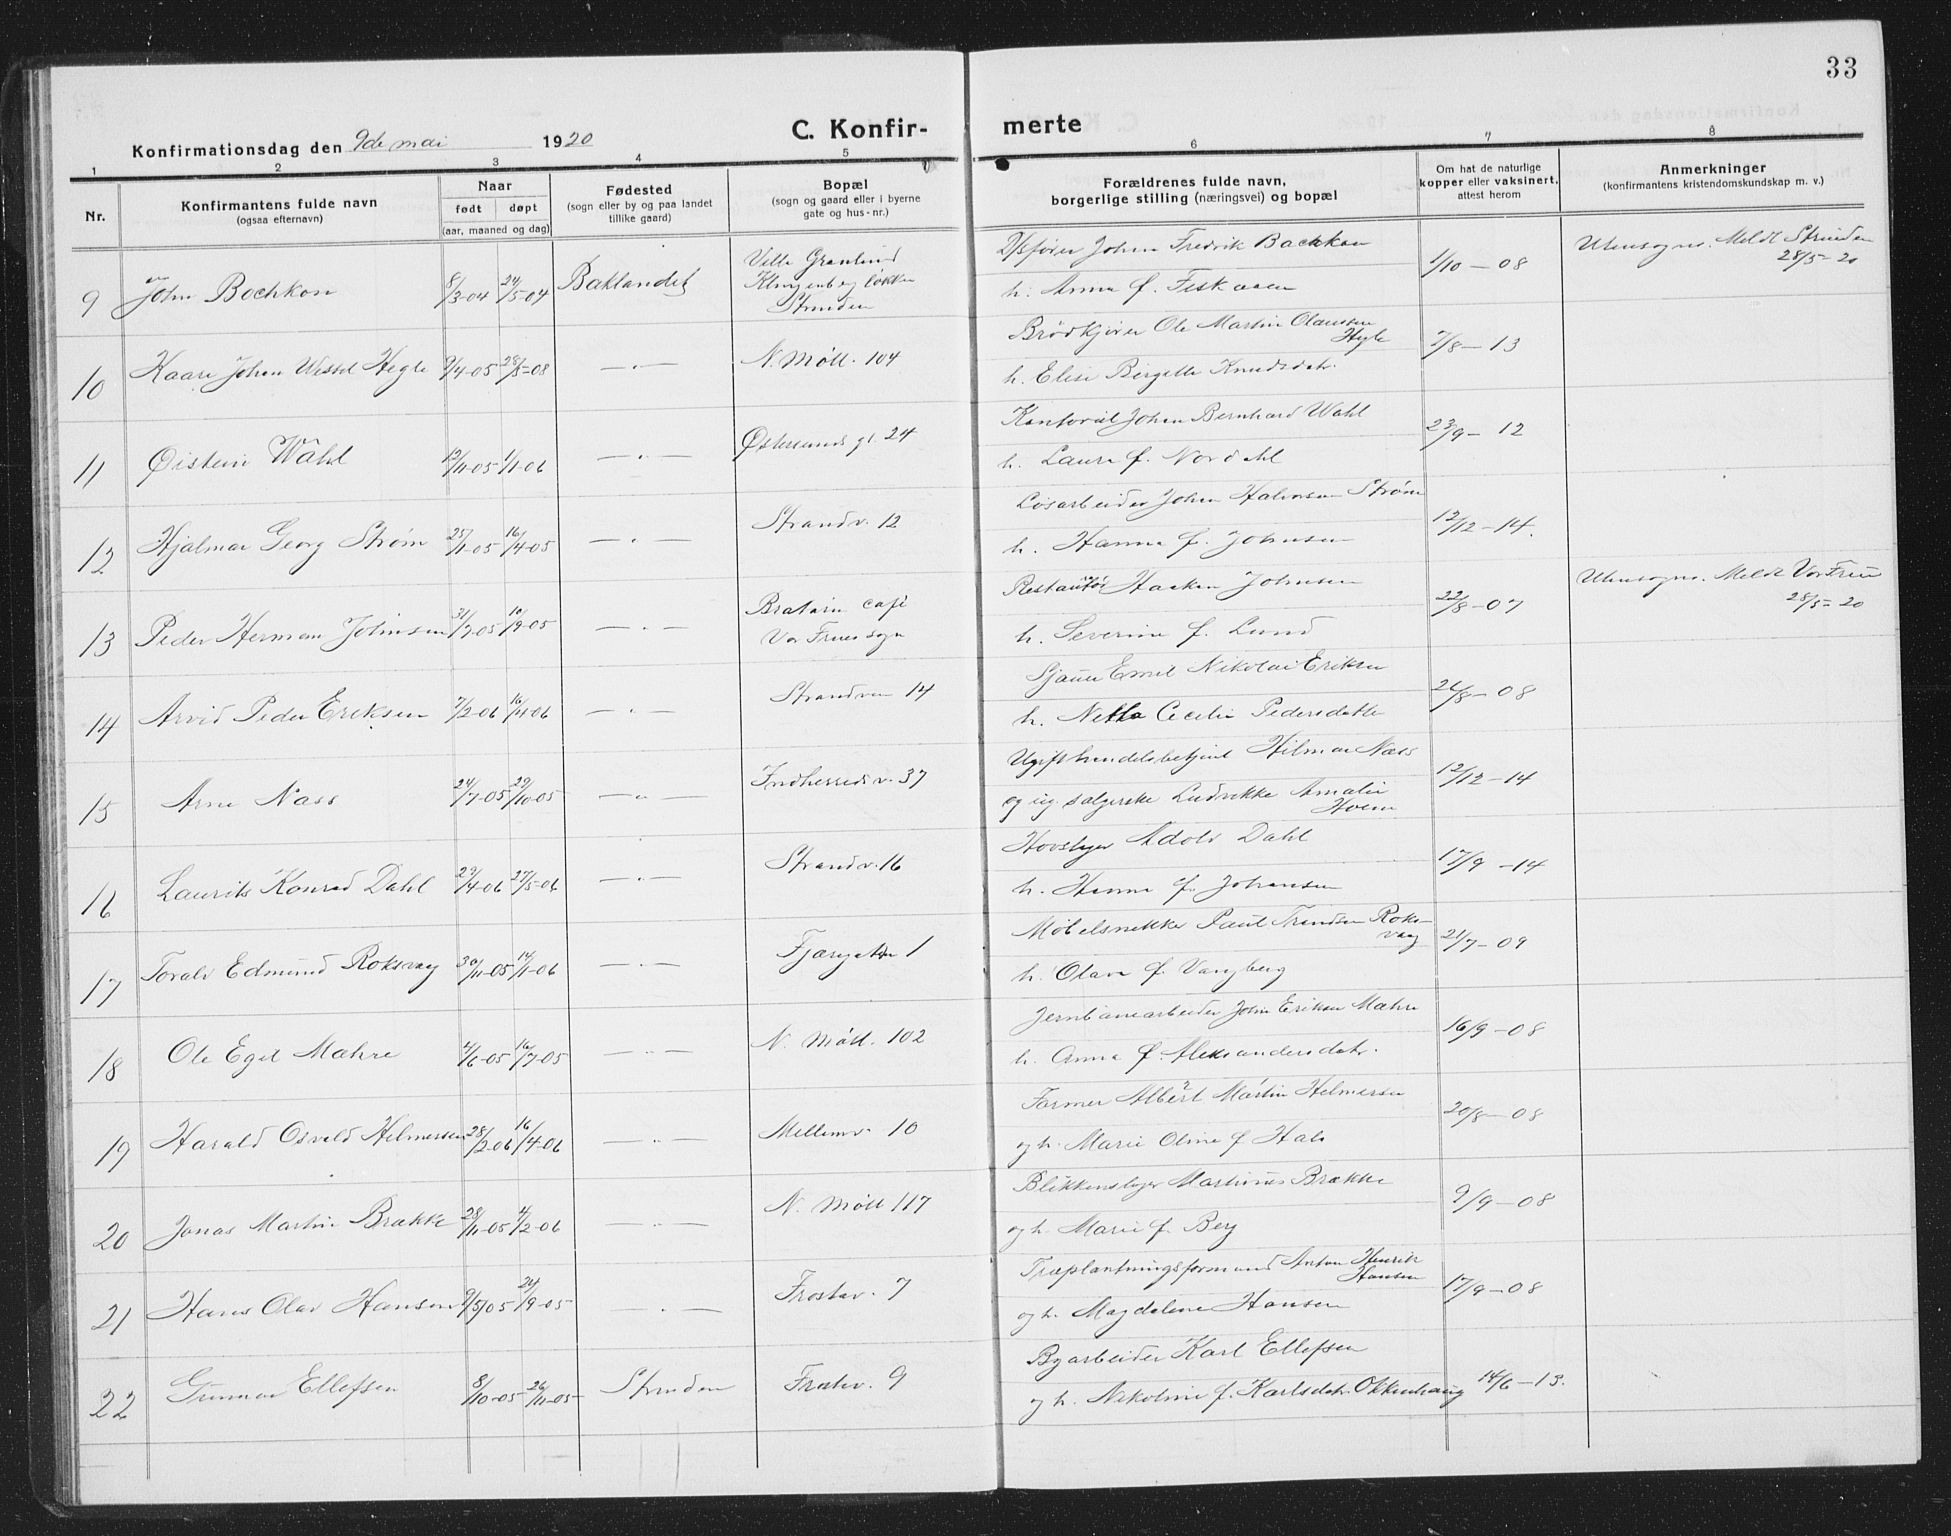 33
C. Konfirmerte
Konfirmationsdag den 9de mai 1920
1 2 3 4 5 6 7 8
Nr.
Konfirmantens fulde navn
(ogsaa efternavn)
Naar
født døpt
(aar, maaned og dag)
Fødested
(sogn eller by og paa landet
tillike gaard)
Bopæl
(sogn og gaard eller i byerne
gate og hus-nr.)
Forældrenes fulde navn,
borgerlige stilling (næringsvei) og bopæl
Om hat de naturlige
kopper eller vaksinert,
attest herom
Anmerkninger
(konfirmantens kristendomskundskap m. v.)
9 John Bochkon 8/3-04 24/5-04 Baklandet
Strinden
Johan Fredrik Bachkon
h. Anna f.
1/10-08
Utensogns. Meldt Strinden
28/5-20
10 Kaare Johan Hegle 9/4-05 28/5-08 —„— N. Møll. 104
Brødkjører Ole Martin Olaussen
Hegle
h. Elise Bergitte Knudsdatr.
7/8-13
11 Øistein Wahl 12/11-05 1/1-06 —„— Østersunds gt. 24
Johan Bernhard Wahl
h. Laura f. Nordahl
23/9-12
12 Hjalmar Georg Strøm 25/1-05 16/4-05 —„— Strandv. 12
Løsarbeider Johan Strøm
h. Hanna f. Johnsen
12/12-14.
13 Peder Herman Johnsen 31/7-05 10/9-05 —„— Bratøra café
Vor Frues sogn
Restauratør Haaken Johnsen
h. Severine f. Lund
22/8-07
Utensogns. Meldt Vor Frue
28/5-20
14 Arvid Peder Eriksen 7/2-06 16/4-06 —„— Strandveien 14
Sjauer Emil Nikolai Eriksen
h. Netta Cecilie Pedersdatter
26/8-08
15 Arne Næss 24/7-05 29/10-05 —„— Indherredsv. 37
Ugift handelsbetjent Hilmar Næss
og ug. sælgerske Ludvikke Amalie
Hoem
12/12-14
16 Laurits Konrad Dahl 23/4-06 27/5-06 —„— Strandv. 16
Hovslager Adolv Dahl
h. Hanna f. Johansen
17/9-14
17 Toralv Edmund Roksvaag 30/11-05 14/1-06 —„— Fjæregaten 1
Møbelsnekker Paul Roks-
vaag
h. Olava f. Vangberg
21/7-09
18 Ole Egil Mæhre 4/6-05 16/7-05 —„— N. Møll. 102
Jernbanearbeider John Eriksen Mæhre
h. Anna f. Aleksandersdatr.
16/9-08
19 Harald Osvald Helmersen 28/2-06 16/4-06 —„— Mellemv. 10
Farmer Albert Martin Helmersen
og h. Marie Oline f. Hals
20/8-08
20 Jonas Martin Brække 28/11-05 4/2-06 —„— N. Møll 117
Blikkenslager Martinus Brække
og h. Marie f. Berg
9/9-08
21 Hans Olav Hansen 9/5/05 24/9-05 —„— Frostav. 7
Træplantningsformand Anton Henrik
Hansen
og h. Magdalene Hansen
17/9-08
22 Gunnar Ellefsen 8/10-05 26/11-05 Strinden Frostav. 9
Byarbeider Karl Ellefsen
og h. Nikoline f. Karlsdatr. Okkenhaug
14/6-13.